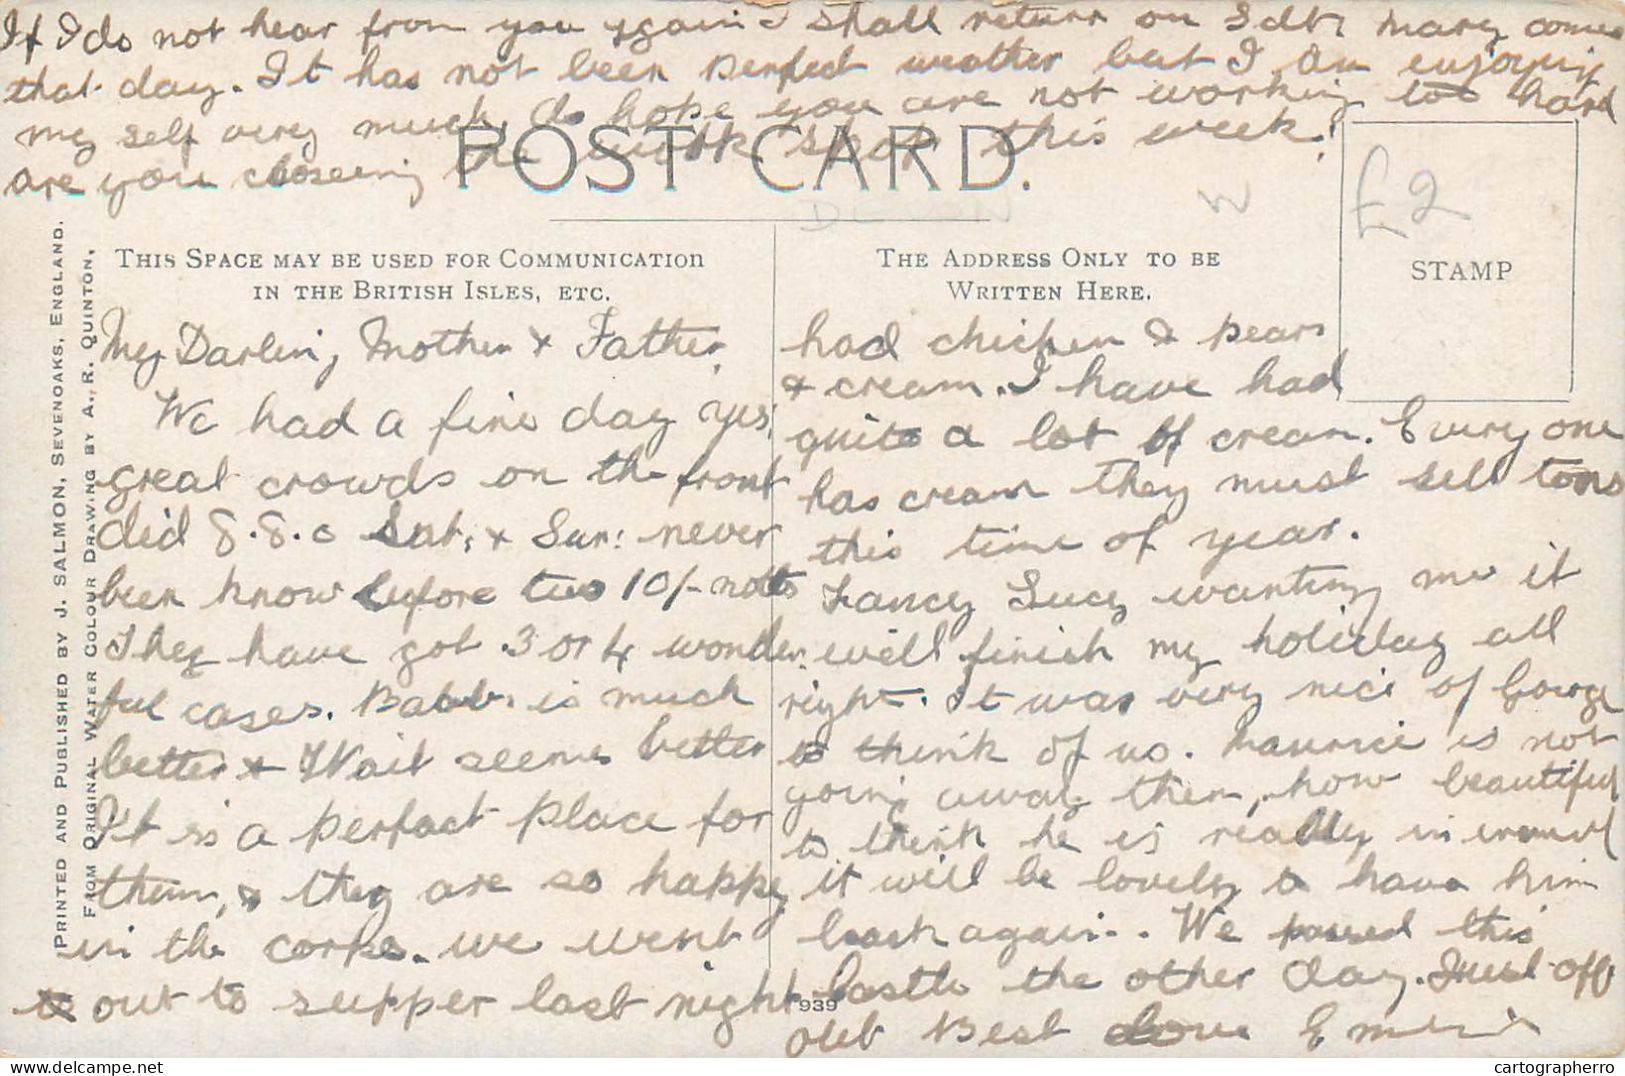 If I do not hear from you again I shall return on Sat: Mary comes
that day. It has not been perfect weather but I am enjoying
my self very much, do hope you are not working too hard
are you the work shop this week?
POST CARD.
£2
STAMP
W
THIS SPACE MAY BE USED FOR COMMUNICATION
IN THE BRITISH ISLES, ETC.
THE ADDRESS ONLY TO BE
WRITTEN HERE.
PRINTED AND PUBLISHED BY J. SALMON, SEVENOAKS, ENGLAND.
FROM ORIGINAL WATER COLOUR DRAWING BY A. R. QUINTON,
My Darling Mother & Father,
We had a fine day yes;
great crowds on the front
did 8.8.0 Sat; & Sun: never
been know before two 10/- notes
They have got 3 or 4 wonder-
ful cases. is much
better & Wait seems better
It is a perfect place for
them, & they are so happy
in the corps. we went
to out to supper last night
had chicken & pears
& cream. I have had
quite a lot of cream. Every one
has cream they must sell tons
this time of year.
Fancy Lucy wanting me it
will finish my holiday all
right. It was very nice of George
to think of us. Maurice is not
going away then, how beautiful
to think he is really in
it will be lovely to have him
back again. We passed this
Castle the other day. Just off
out Best Love
939